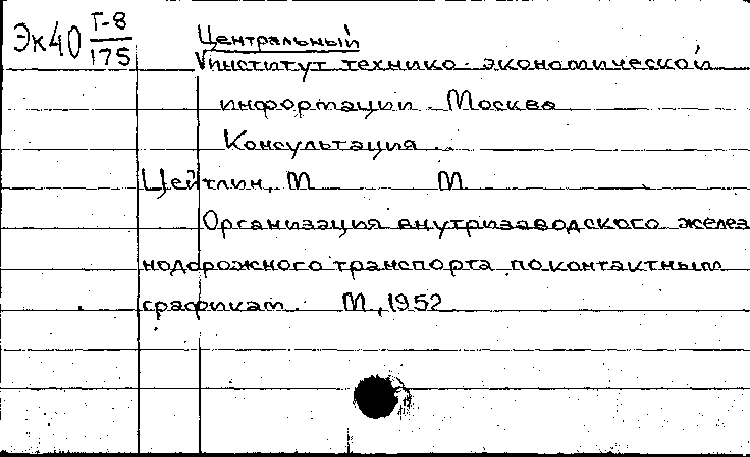 Эк40 Г-8/175
Центральный
институт технико-экономической
информации. Москва
Консультация
Цейтлин, М. М.
Организация внутризаводского желез
нодорожного транспорта по контактным
графикам. М., 1952